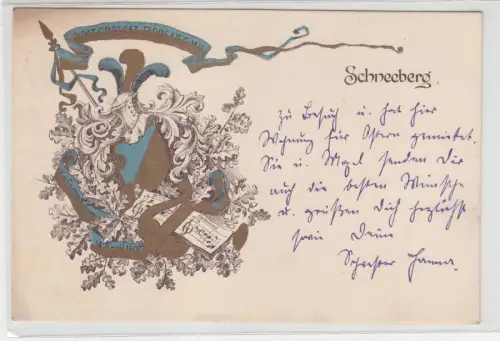 Schneeberg.
zu Besuch u. hat hier
Wohnung für Ostern gemietet.
Sie u. senden Dir
auch die besten Wünsche
u. grüßen Dich herzlichst
sowie Deine
Schwester Hanna.